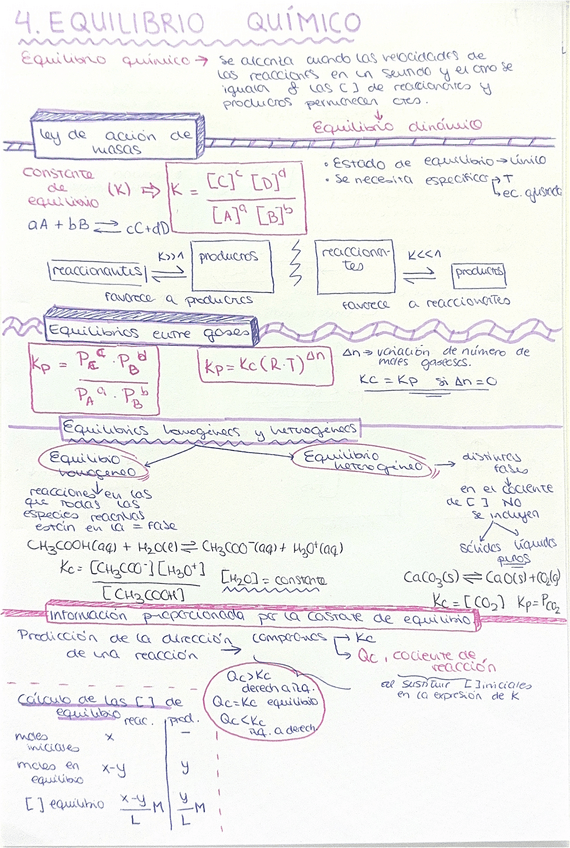 4. EQUILIBRIO QUÍMICO
Equilibrio químico → se alcanza cuando las velocidades de
las reacciones en un sentido y el otro se
iguala y las [ ] de reaccionantes y
productos permanecen ctes.
↓
Equilibrio dinámico
Ley de acción de
masas
Constante
de
equilibrio (K) ⇒ K = [C]ᶜ [D]ᵈ / [A]ᵃ [B]ᵇ
• Estado de equilibrio → único
• Se necesita especificar → T
↳ ec. ajustada
aA + bB ⇌ cC+dD
reaccionantes K>>1 ⇌ productos
favorece a productos
reaccionan-
tes K<<1 ⇌ productos
favorece a reaccionantes
Equilibrios entre gases
Kp = P_C^c · P_B^d / P_A^a · P_B^b
Kp = Kc (R·T)^Δn
Δn → variación de número de
moles gaseosos.
Kc = Kp si Δn = 0
Equilibrios homogéneos y heterogéneos
Equilibrio
homogéneo
Equilibrio
heterogéneo → distintas
fases
↓
en el cociente
de [ ] NO
se incluyen
sólidos líquidos
puros
reacciones en las
que todas las
especies reactivas
están en la = fase
CH₃COOH(aq) + H₂O(l) ⇌ CH₃COO⁻(aq) + H₃O⁺(aq)
Kc = [CH₃COO⁻][H₃O⁺] / [CH₃COOH]
[H₂O] = constante
CaCO₃(s) ⇌ CaO(s)+CO₂(g)
Kc = [CO₂] Kp = P_CO₂
Información proporcionada por la constante de equilibrio
Predicción de la dirección
de una reacción → comparamos → Kc
↳ Qc, cociente de
reacción
al sustituir [ ] iniciales
en la expresión de K
Qc>Kc
derech a izq.
Qc=Kc equilibrio
Qc<Kc
izq. a derech
Cálculo de las [ ] de
equilibrio
reac. prod.
moles
iniciales x –
moles en
equilibrio x-y y
[ ] equilibrio x-y/L M y/L M